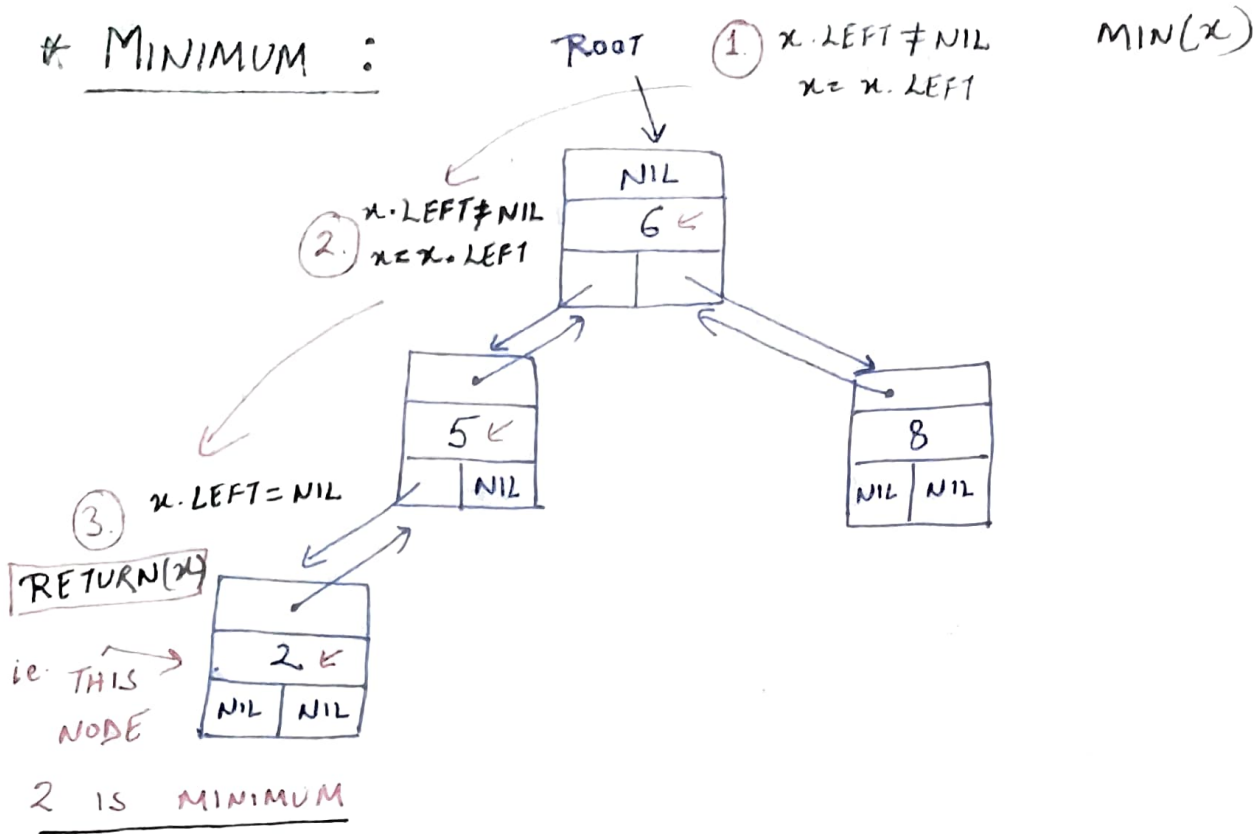 * MINIMUM :
ROOT
1. x.LEFT ≠ NIL
x = x.LEFT
MIN(x)
NIL
6
2. x.LEFT ≠ NIL
x = x.LEFT
5
NIL
8
NIL NIL
3. x.LEFT = NIL
RETURN(x)
2
NIL NIL
ie. THIS
NODE
2 IS MINIMUM